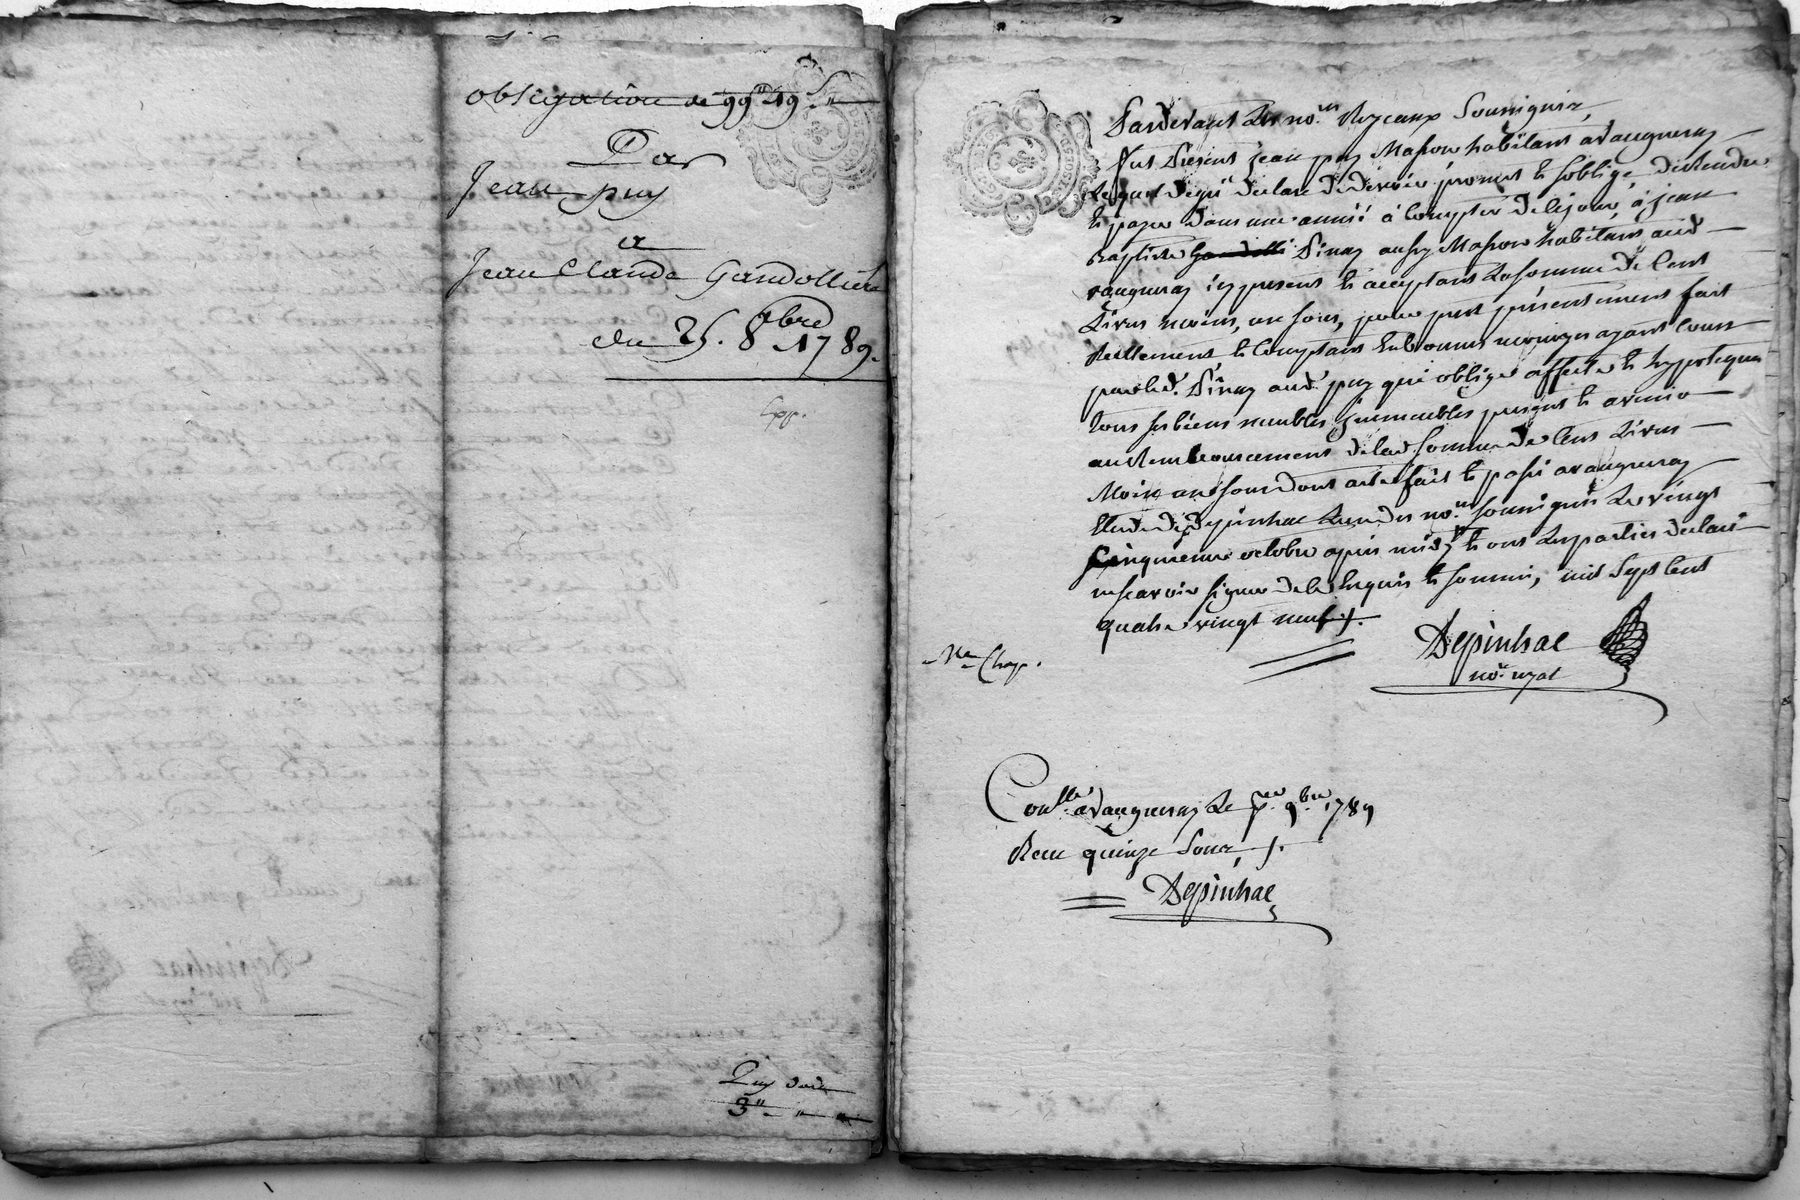 obligation de 99ᴸᴸ 19ˢ
Par
Jean puy
a
Jean Claude Gandolliere
du 25. 8bre 1789.
Exp.
Puy doit
3ᴸᴸ " "
Pardevant Les no.res Royeaux Soussignés,
fut Present jean puy Masson habitant a vaugneray
Lequel de gré declare de devoir promet et soblige de rendre
et payer dans une année à Compter de ce jour, à jean
Baptiste Pinay aussy Masson habitant aud
vaugneray icy present et acceptant La somme de Cent
Livres moins, un sous, pour prest présentement fait
Reellement et Comptant En bonnes monoyes ayant Cours
par led. Pinay aud. puy qui oblige affecte et hypoteque
tous ses biens meubles jmmeubles presents et avenir
au Remboursement de lad somme de Cent Livres
Moins un sous dont acte fait et passé a vaugneray
Etude de Depinhac L'un des no.res soussignés Le vingt
Cinquieme octobre après midy et ont Les parties declaré
ne scavoir signer de ce Enquis et sommés, mil Sept Cent
quatre vingt neuf ./.
Depinhac
no.re royal
Con.llé a Vaugneray Le p.er 9.bre 1789
Recu quinze Sous ./.
Depinhac